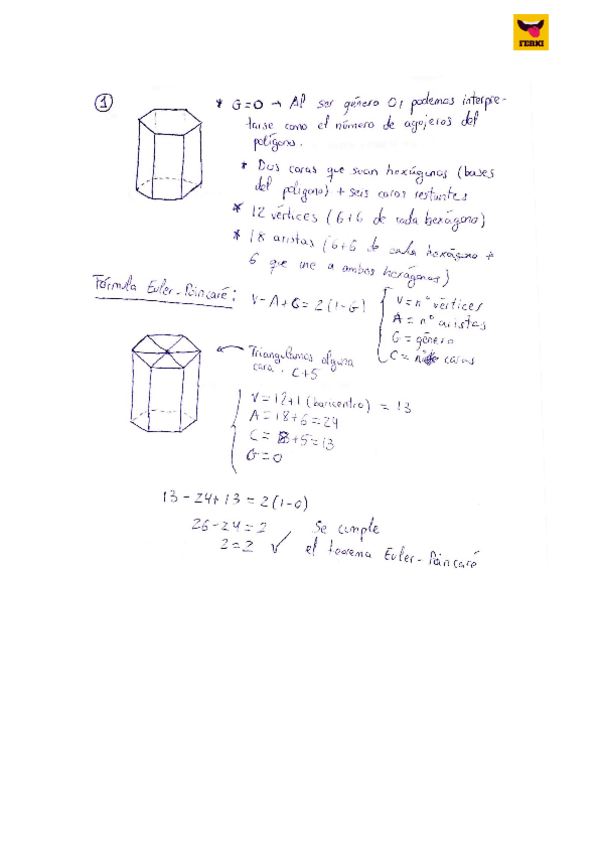 FERKI
1
* G=0 → Al ser género 0, podemos interpre-
tarse como el número de agujeros del
polígono.
* Dos caras que sean hexágonas (bases
del polígono) + seis caras restantes
* 12 vértices (6+6 de cada hexágono)
* 18 aristas (6+6 de cada hexágono +
6 que une a ambos hexágonos)
Fórmula Euler-Poincaré:
V-A+C=2(1-G)
V=nº vértices
A=nº aristas
G=género
C=nº de caras
Triangulamos alguna
cara. C+5
V=12+1(baricentro)=13
A=18+6=24
C=8+5=13
G=0
13-24+13=2(1-0)
26-24=2
2=2 ✓
Se cumple
el teorema Euler-Poincaré